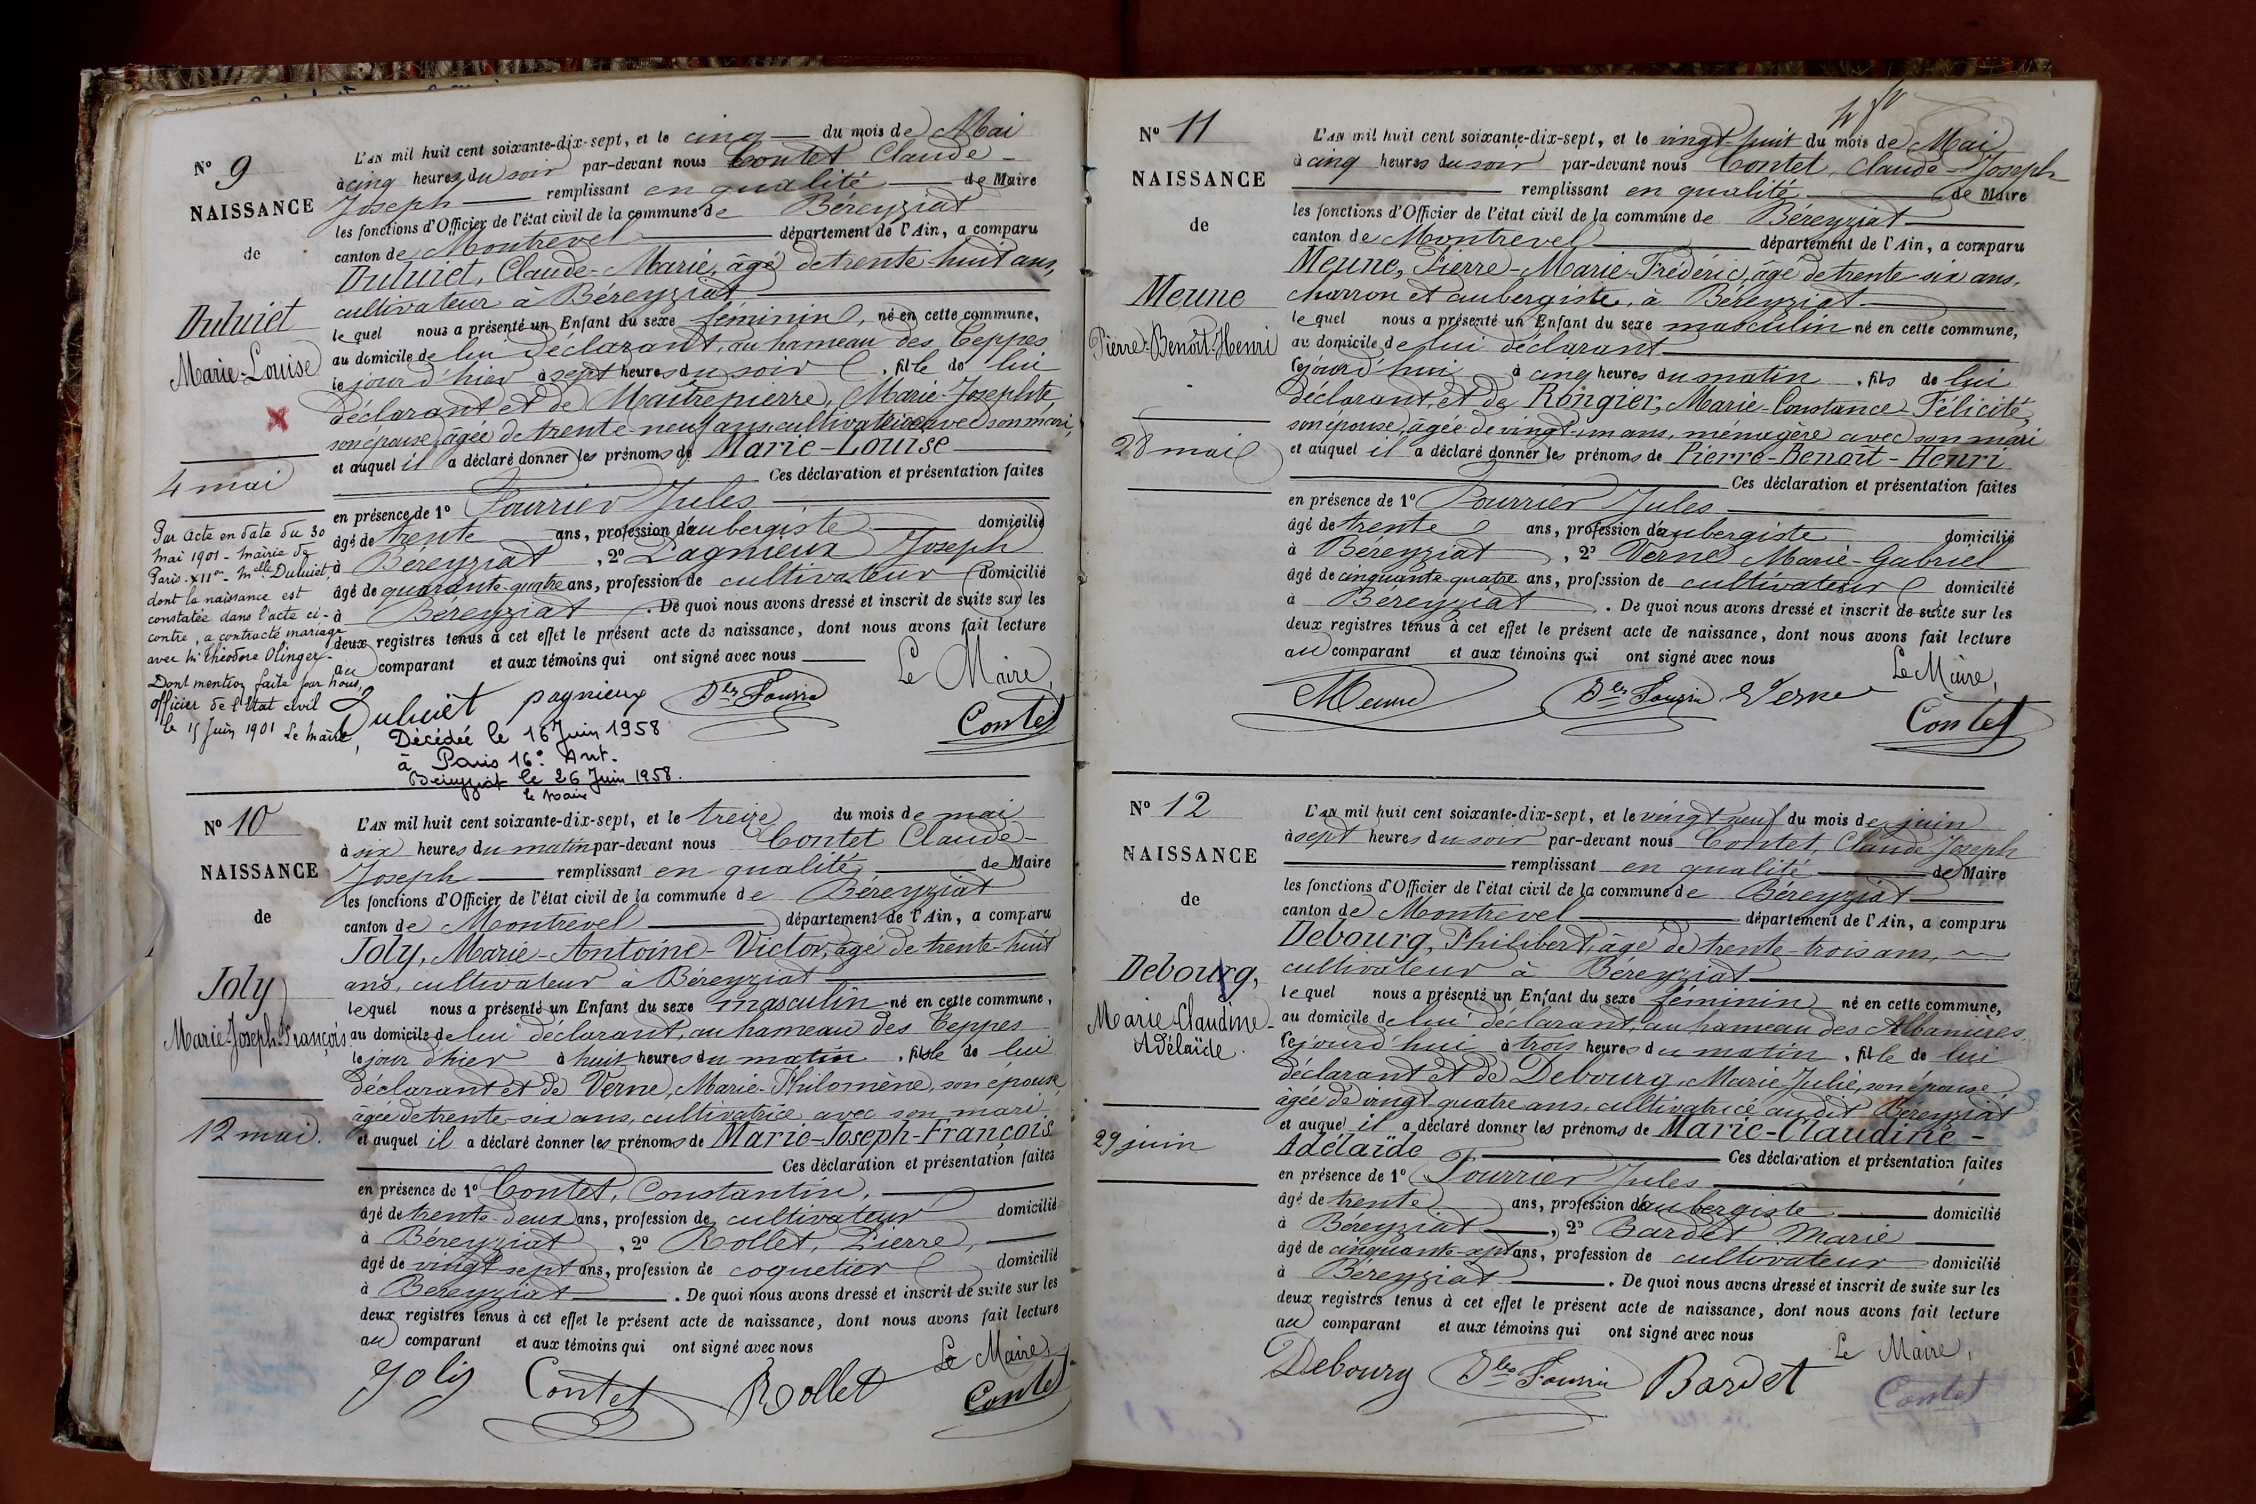 N° 9
NAISSANCE
de
Duluiet
Marie-Louise
4 mai
Par acte en date du 30
mai 1901 - mairie de
Paris - XIIe - Melle Duluiet,
dont la naissance est
constatée dans l'acte ci-
contre, a contracté mariage
avec Mr Théodore Olinger.
Dont mention faite par nous,
officier de l'état civil
le 15 Juin 1901 Le Maire,
L'AN mil huit cent soixante-dix-sept, et le cinq du mois de Mai
à cinq heures du soir par-devant nous Contet Claude-
Joseph remplissant en qualité de Maire
les fonctions d'Officier de l'état civil de la commune de Béreyziat
canton de Montrevel département de l'Ain, a comparu
Duluiet, Claude-Marie, âgé de trente huit ans,
cultivateur à Béreyziat
le quel nous a présenté un Enfant du sexe féminin, né en cette commune,
au domicile de lui déclarant, au hameau des Teppes
le jour d'hier à sept heures du soir, fille de lui
déclarant et de Maîtrepierre, Marie-Josephte,
son épouse, âgée de trente-neuf ans cultivatrice avec son mari,
et auquel il a déclaré donner les prénoms de Marie-Louise
Ces déclaration et présentation faites
en présence de 1° Fourrier Jules
âgé de trente ans, profession d'aubergiste domicilié
à Béreyziat, 2° Pagnieux Joseph
âgé de quarante-quatre ans, profession de cultivateur domicilié
à Béreyziat. De quoi nous avons dressé et inscrit de suite sur les
deux registres tenus à cet effet le présent acte de naissance, dont nous avons fait lecture
au comparant et aux témoins qui ont signé avec nous
Le Maire,
Duluiet pagnieux Jles Fourrier
Contet
Décédée le 16 Juin 1958
à Paris 16e Art.
Béreyziat le 26 Juin 1958.
le Maire
N° 10
NAISSANCE
de
Joly
Marie-Joseph-François
12 mai.
L'AN mil huit cent soixante-dix-sept, et le treize du mois de mai
à six heures du matin par-devant nous Contet Claude-
Joseph remplissant en qualité de Maire
les fonctions d'Officier de l'état civil de la commune de Béreyziat
canton de Montrevel département de l'Ain, a comparu
Joly, Marie-Antoine-Victor, âgé de trente-huit
ans, cultivateur à Béreyziat
lequel nous a présenté un Enfant du sexe masculin né en cette commune,
au domicile de lui déclarant, au hameau des Teppes
le jour d'hier à huit heures du matin, fils de lui
déclarant et de Verne, Marie-Philomène, son épouse,
âgée de trente-six ans, cultivatrice avec son mari,
et auquel il a déclaré donner les prénoms de Marie-Joseph-François
Ces déclaration et présentation faites
en présence de 1° Contet, Constantin,
âgé de trente-deux ans, profession de cultivateur domicilié
à Béreyziat, 2° Rollet, Pierre,
âgé de vingt sept ans, profession de coquetier domicilié
à Béreyziat. De quoi nous avons dressé et inscrit de suite sur les
deux registres tenus à cet effet le présent acte de naissance, dont nous avons fait lecture
au comparant et aux témoins qui ont signé avec nous
Le Maire,
Joly Contet Rollet Contet
N° 11
NAISSANCE
de
Meune
Pierre-Benoît-Henri
28 mai
L'AN mil huit cent soixante-dix-sept, et le vingt-huit du mois de Mai
à cinq heures du soir par-devant nous Contet, Claude-Joseph
remplissant en qualité de Maire
les fonctions d'Officier de l'état civil de la commune de Béreyziat
canton de Montrevel département de l'Ain, a comparu
Meune, Pierre-Marie-Frédéric, âgé de trente-six ans,
charron et aubergiste, à Béreyziat
le quel nous a présenté un Enfant du sexe masculin né en cette commune,
au domicile de lui déclarant
cejourd'hui à cinq heures du matin, fils de lui
déclarant, et de Rongier, Marie-Constance-Félicité,
son épouse, âgée de vingt-un ans, ménagère avec son mari
et auquel il a déclaré donner les prénoms de Pierre-Benoît-Henri
Ces déclaration et présentation faites
en présence de 1° Fourrier Jules
âgé de trente ans, profession d'aubergiste domicilié
à Béreyziat, 2° Verne Marie-Gabriel
âgé de cinquante-quatre ans, profession de cultivateur domicilié
à Béreyziat. De quoi nous avons dressé et inscrit de suite sur les
deux registres tenus à cet effet le présent acte de naissance, dont nous avons fait lecture
au comparant et aux témoins qui ont signé avec nous
Le Maire,
Meune Jles Fourrier Verne
Contet
N° 12
NAISSANCE
de
Debourg,
Marie-Claudine-
Adélaïde.
29 juin
L'AN mil huit cent soixante-dix-sept, et le vingt neuf du mois de juin
à sept heures du soir par-devant nous Contet, Claude Joseph
remplissant en qualité de Maire
les fonctions d'Officier de l'état civil de la commune de Béreyziat
canton de Montrevel département de l'Ain, a comparu
Debourg, Philibert, âgé de trente-trois ans,
cultivateur à Béreyziat
le quel nous a présenté un Enfant du sexe féminin né en cette commune,
au domicile de lui déclarant, au hameau des
cejourd'hui à trois heures du matin, fille de lui
déclarant et de Debourg, Marie Julie, son épouse,
âgée de vingt-quatre ans, cultivatrice audit Béreyziat
et auquel il a déclaré donner les prénoms de Marie-Claudine-
Adélaïde Ces déclaration et présentation faites
en présence de 1° Fourrier Jules
âgé de trente ans, profession d'aubergiste domicilié
à Béreyziat, 2° Bardet Marie
âgé de cinquante-sept ans, profession de cultivateur domicilié
à Béreyziat. De quoi nous avons dressé et inscrit de suite sur les
deux registres tenus à cet effet le présent acte de naissance, dont nous avons fait lecture
au comparant et aux témoins qui ont signé avec nous
Le Maire,
Debourg Jles Fourrier Bardet
Contet